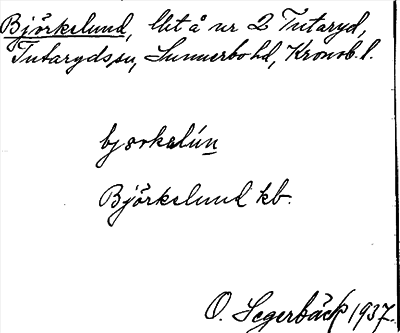 Björkelund, lht å nr 2 Tutaryd,
Tutaryds sn, Sunnerbo hd, Kronob. l.
bjørkelún
Björkelund kb.
O. Segerbäck 1937.